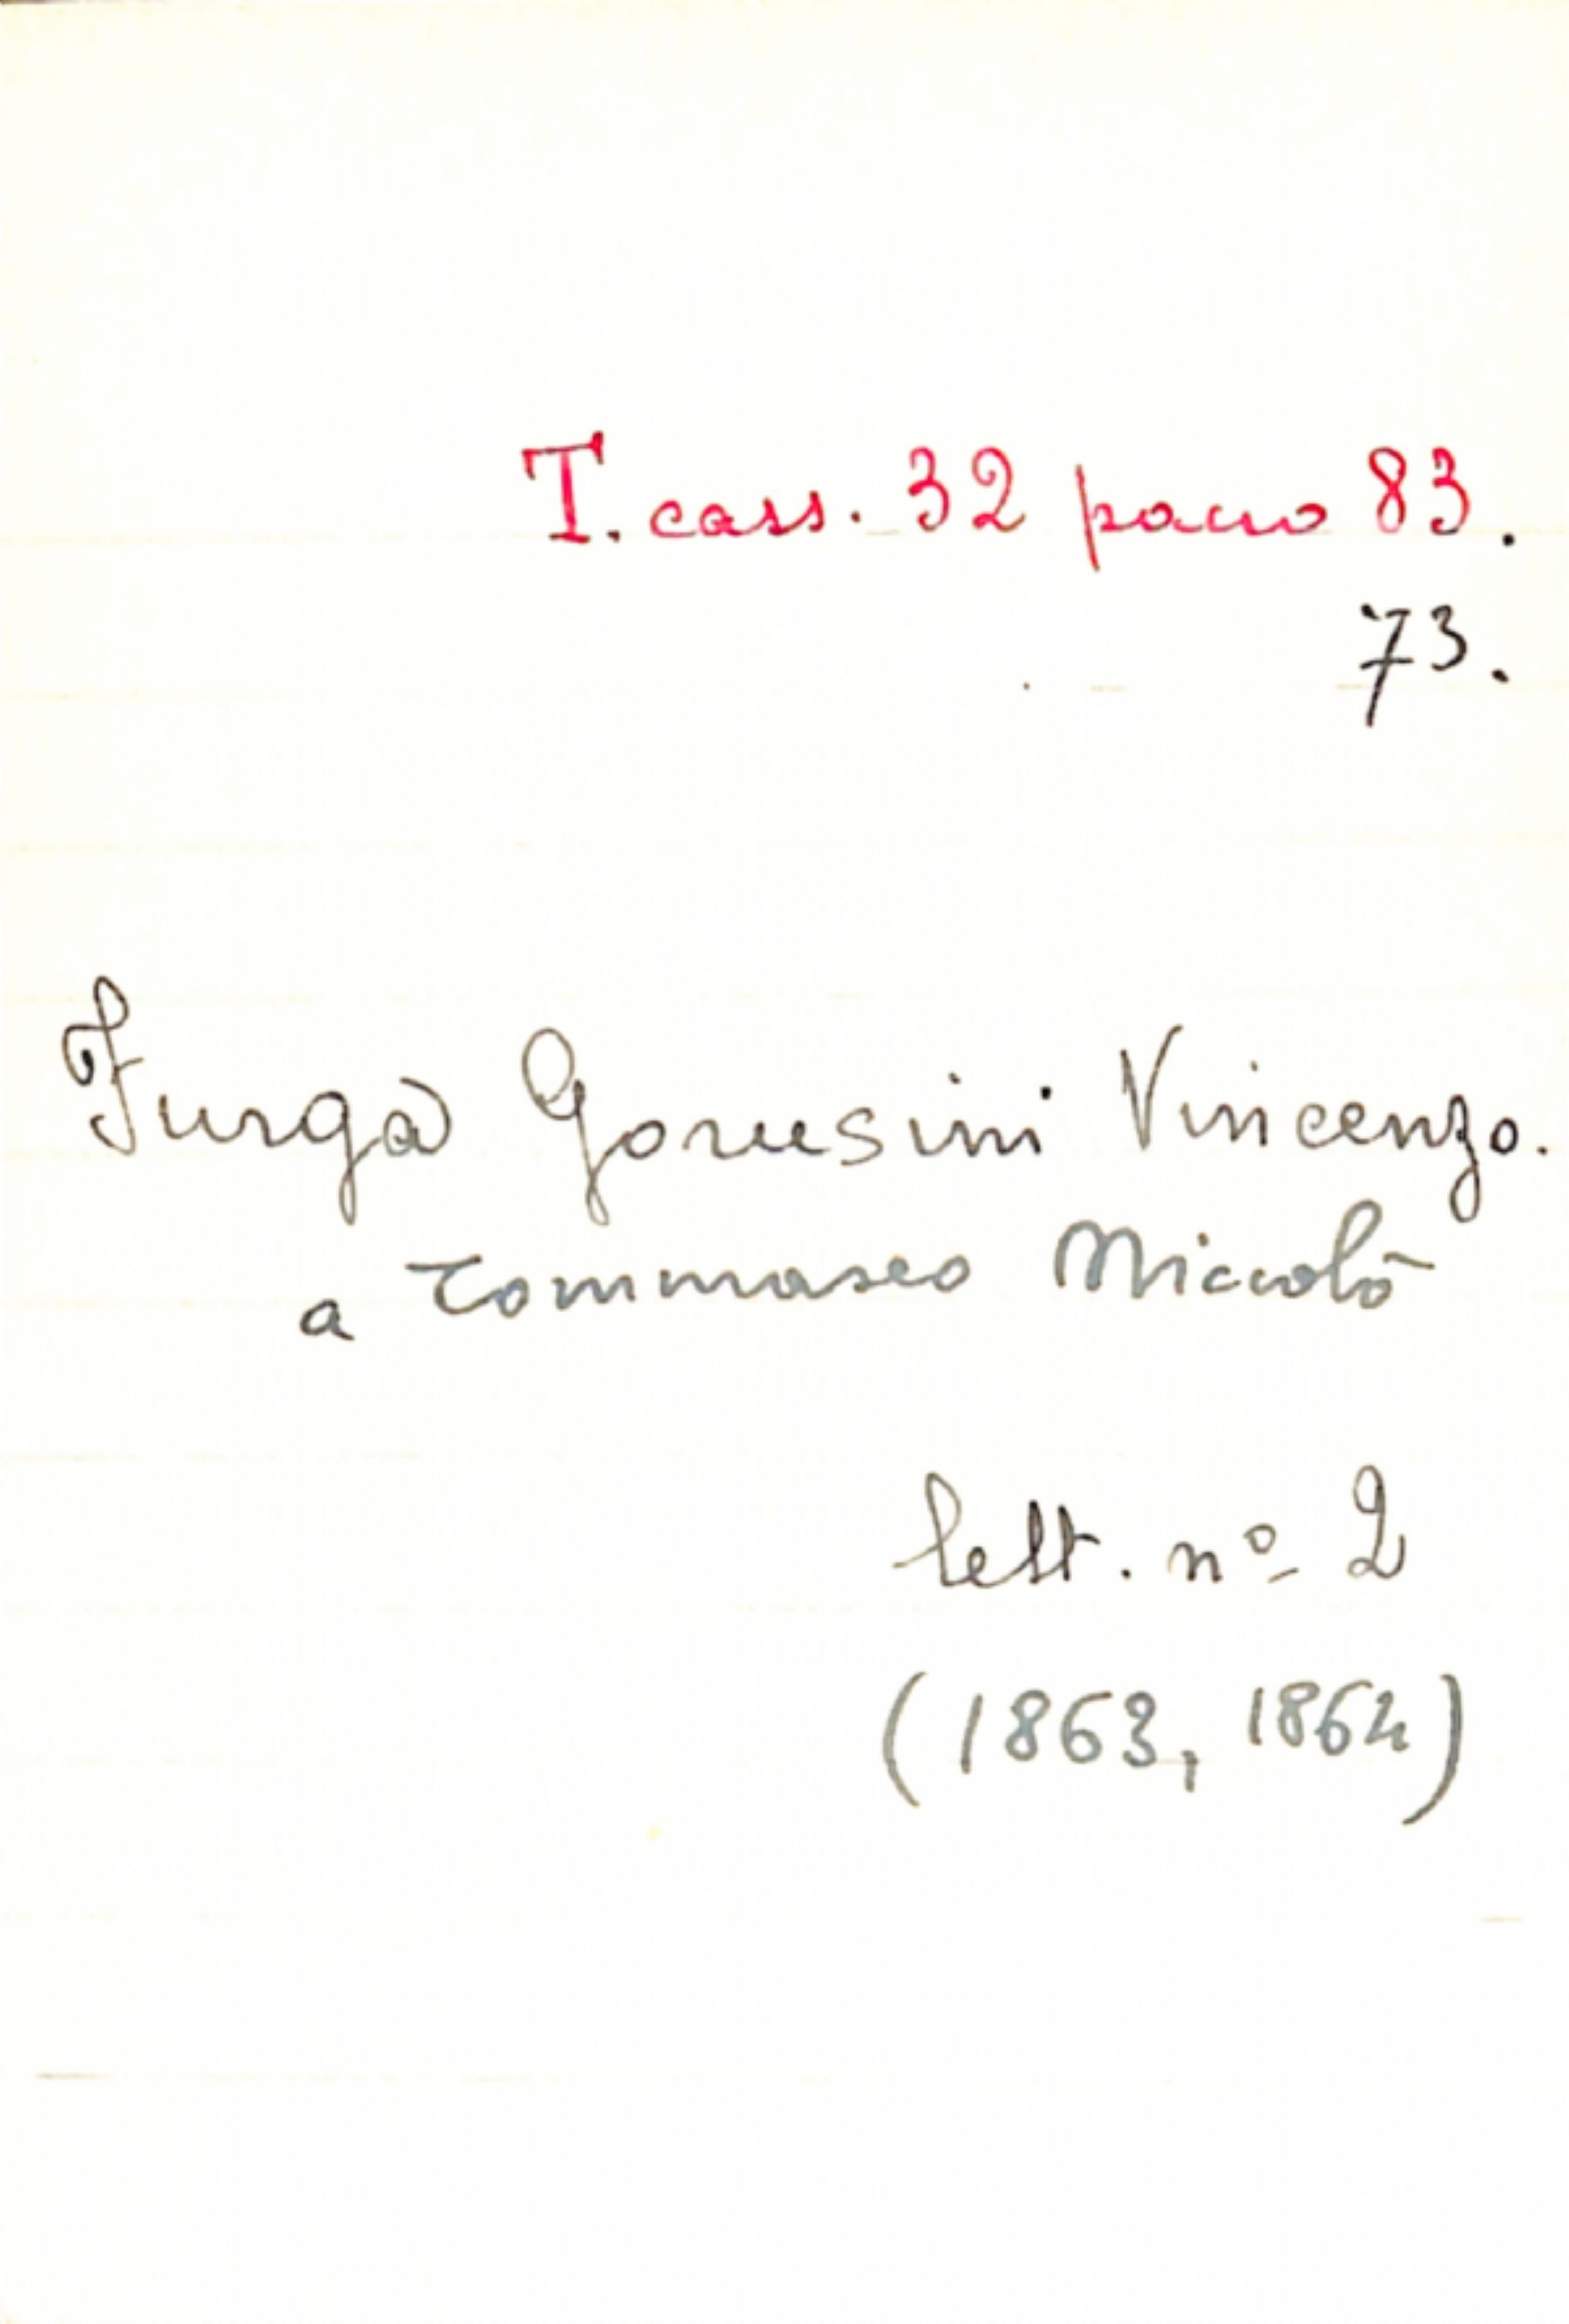 T. cass. 32 pacco 83.
73.
Furga Gornesini Vincenzo.
a Tommaseo Niccolò
lett. nº 2
(1863, 1864)